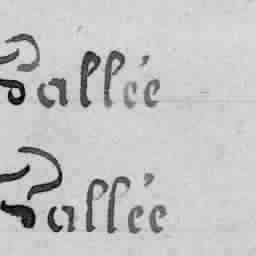 Vallée
Vallée